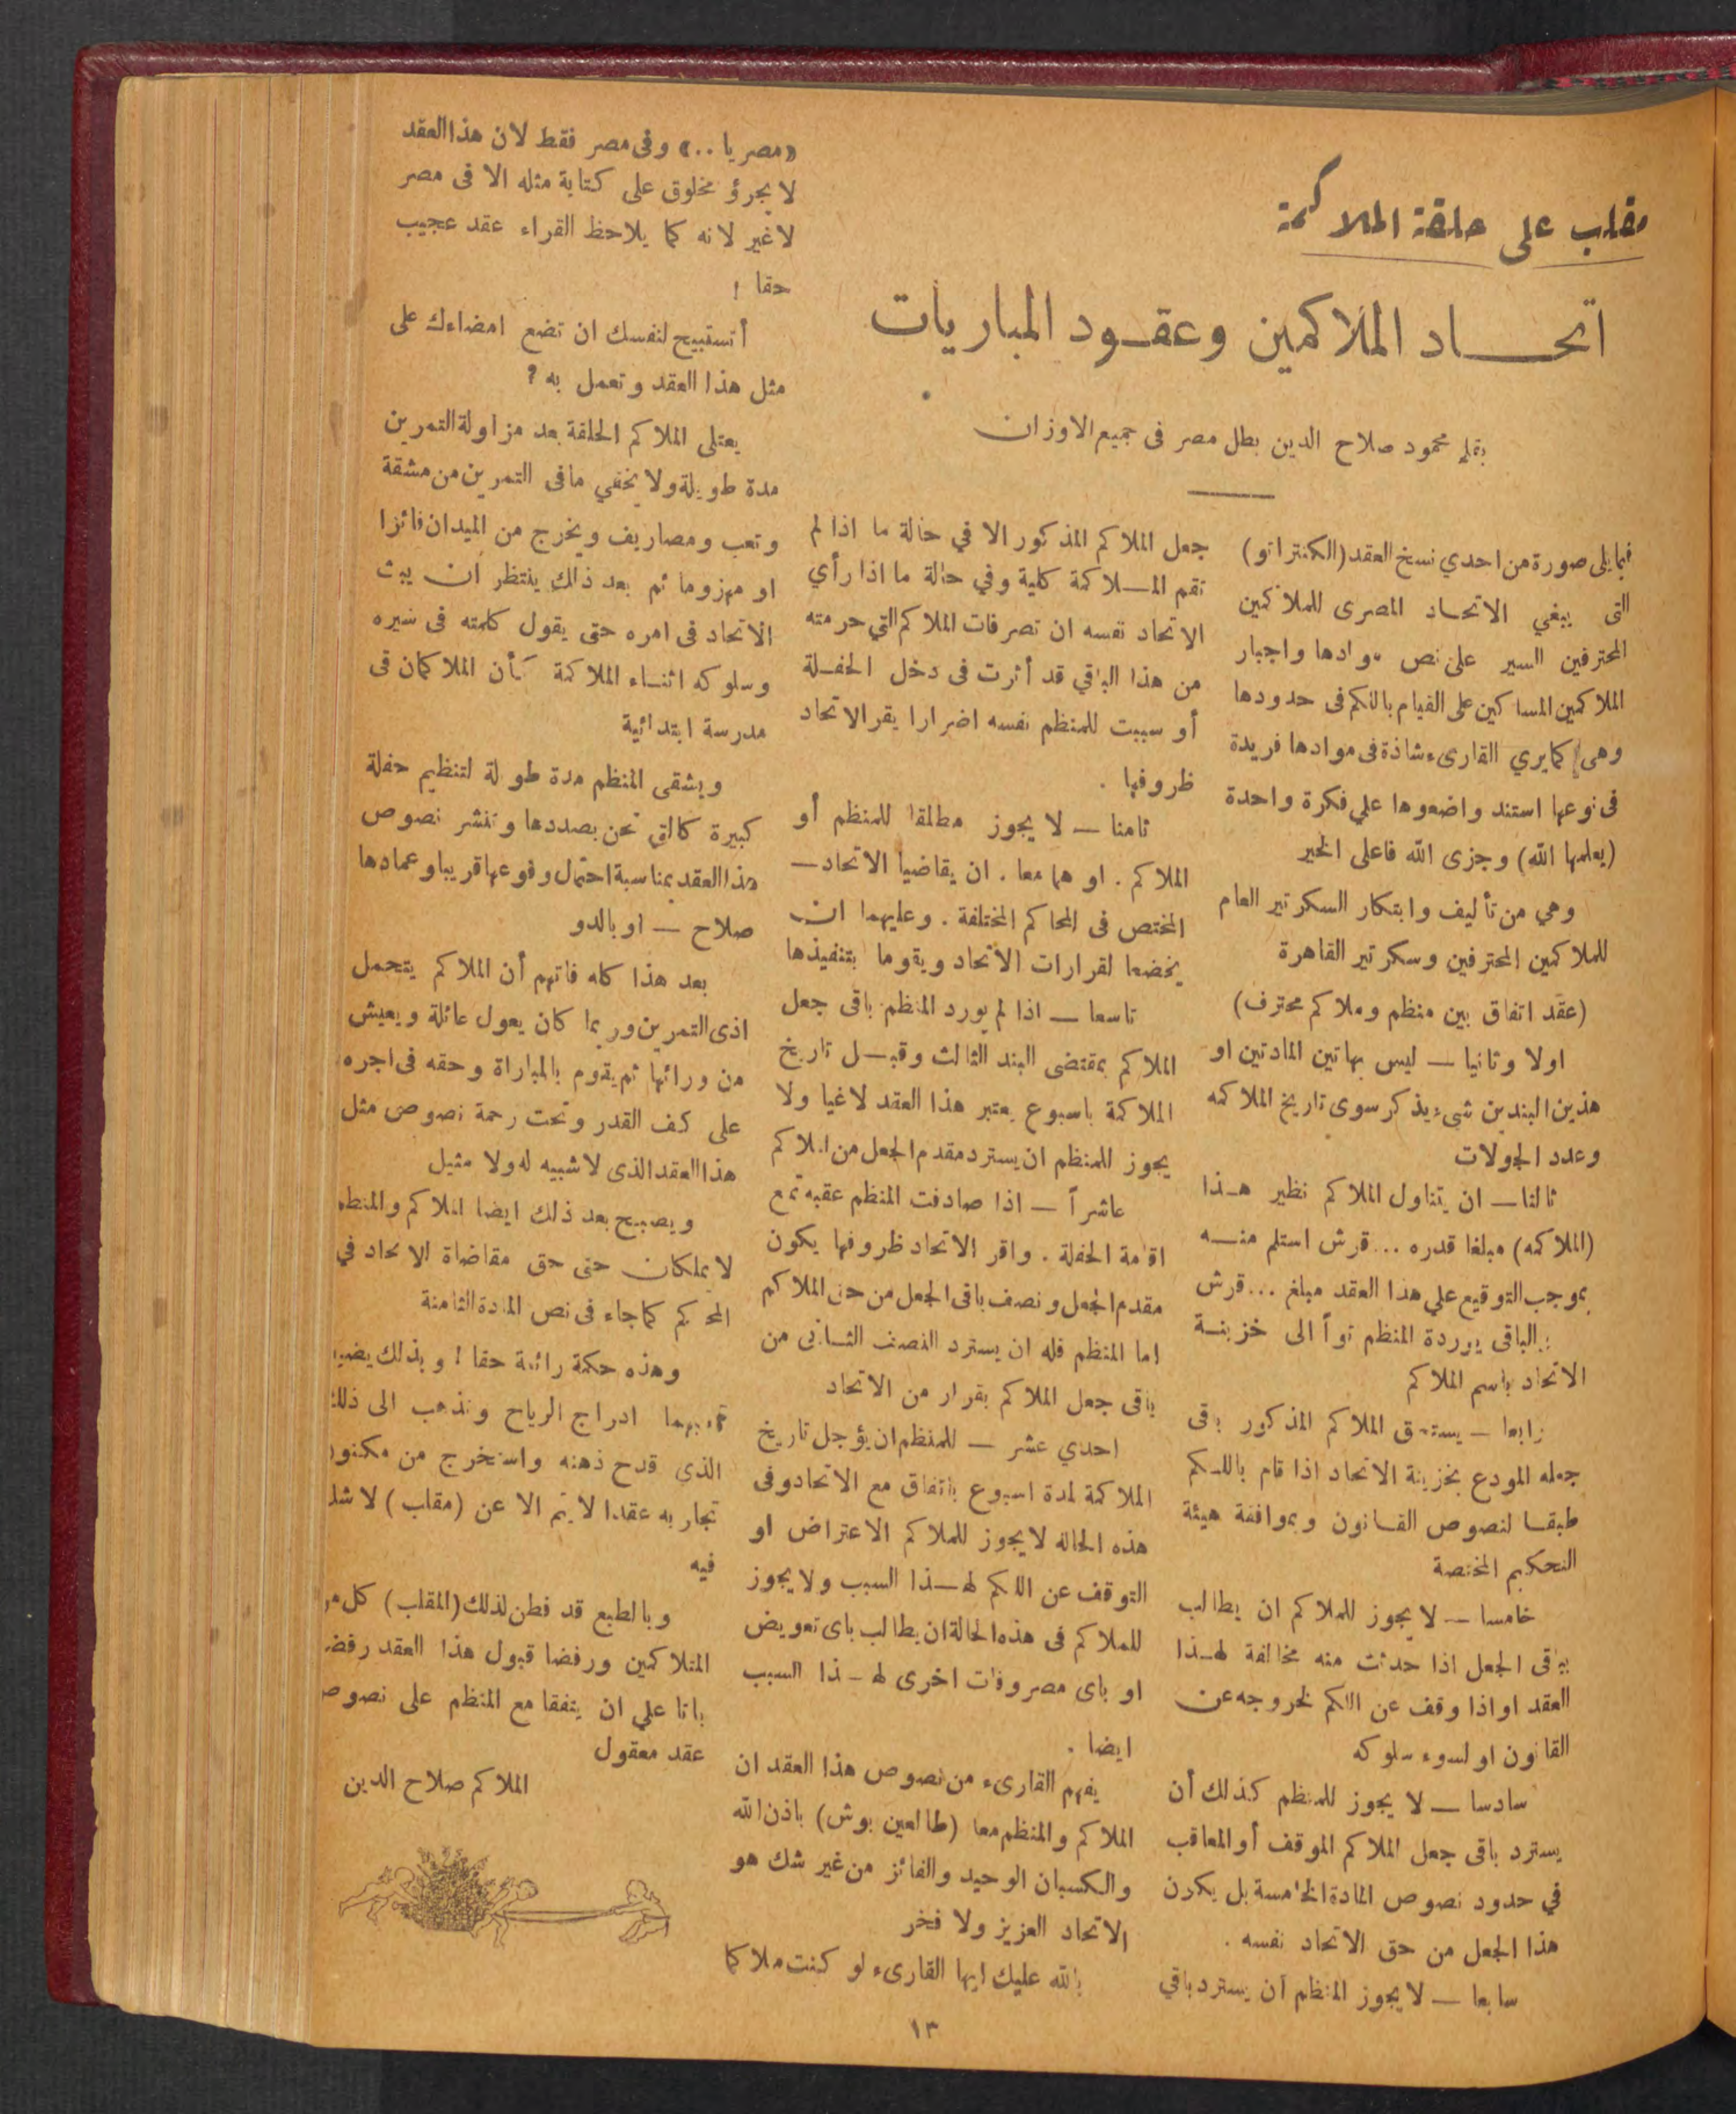 مقلب على حلقة الملاكمة
اتحاد الملاكمين وعقود المباريات
بقلم محمود صلاح الدين بطل مصر فى جميع الاوزان
فيما يلى صورة من احدي نسخ العقد (الكنتراتو)
التى يبغي الاتحاد المصرى للملاكمين
المحترفين السير على نص موادها واجبار
الملاكمين المساكين على القيام باللكم فى حدودها
وهى كما يري القارىء شاذة فى موادها فريدة
فى نوعها استند واضعوها علي فكرة واحدة
(يعلمها الله) وجزى الله فاعلى الخير
وهي من تأليف وابتكار السكرتير العام
للملاكمين المحترفين وسكرتير القاهرة
(عقد اتفاق بين منظم وملاكم محترف)
اولا وثانيا — ليس بهاتين المادتين او
هذين البندين شىء يذكر سوى تاريخ الملاكمه
وعدد الجولات
ثالثا — ان يتناول الملاكم نظير هذا
(الملاكمه) مبلغا قدره ... قرش استلم منه
بموجب التوقيع علي هذا العقد مبلغ ... قرش
والباقى يوردة المنظم توأ الى خزينة
الاتحاد باسم الملاكم
رابعا — يستحق الملاكم المذكور باقى
جعله المودع بخزينة الاتحاد اذا قام باللكم
طبقا لنصوص القانون وبموافقة هيئة
التحكيم المختصة
خامسا — لا يجوز للملاكم ان يطالب
بباقى الجعل اذا حدثت منه مخالفة لهذا
العقد او اذا وقف عن اللكم لخروجه عن
القانون او لسوء سلوكه
سادسا — لا يجوز للمنظم كذلك أن
يسترد باقى جعل الملاكم الموقف أو المعاقب
في حدود نصوص المادة الخامسة بل يكون
هذا الجعل من حق الاتحاد نفسه .
سابعا — لا يجوز للمنظم ان يسترد باقي
جعل الملاكم المذكور الا في حالة ما اذا لم
تقم الملاكمة كلية وفي حالة ما اذا رأي
الاتحاد نفسه ان تصرفات الملاكم التي حرمته
من هذا الباقي قد أثرت فى دخل الحفلة
أو سببت للمنظم نفسه اضرارا يقر الاتحاد
ظروفها .
ثامنا — لا يجوز مطلقا للمنظم أو
الملاكم . او هما معا . ان يقاضيا الاتحاد —
المختص فى المحاكم المختلفة . وعليهما ان
يخضعا لقرارات الاتحاد ويقوما بتنفيذها
تاسعا — اذا لم يورد المنظم باقى جعل
الملاكم بمقتضى البند الثالث وقبل تاريخ
الملاكمة باسبوع يعتبر هذا العقد لاغيا ولا
يجوز للمنظم ان يسترد مقدم الجعل من الملاكم
عاشراً — اذا صادفت المنظم عقبة تمنع
اقامة الحفلة . واقر الاتحاد ظروفها يكون
مقدم الجعل ونصف باقى الجعل من حق الملاكم
اما المنظم فله ان يسترد النصف الثانى من
باقى جعل الملاكم بقرار من الاتحاد
احدي عشر — للمنظم ان يؤجل تاريخ
الملاكمة لمدة اسبوع باتفاق مع الاتحاد وفى
هذه الحاله لا يجوز للملاكم الاعتراض او
التوقف عن اللكم لهذا السبب ولا يجوز
للملاكم فى هذه الحالة ان يطالب باى تعويض
او باى مصروفات اخرى لهذا السبب
ايضا .
يفهم القارىء من نصوص هذا العقد ان
الملاكم والمنظم معا (طالعين بوش) باذن الله
والكسبان الوحيد والفائز من غير شك هو
الاتحاد العزيز ولا فخر
بالله عليك ايها القارىء لو كنت ملاكما
«مصريا ..» وفى مصر فقط لان هذا العقد
لا يجرؤ مخلوق على كتابة مثله الا فى مصر
لا غير لانه كما يلاحظ القراء عقد عجيب
حقا !
أتستبيح لنفسك ان تضع امضاءك على
مثل هذا العقد وتعمل به ؟
يعتلى الملاكم الحلقة بعد مزاولة التمرين
مدة طويلة ولا يخفي ما فى التمرين من مشقة
وتعب ومصاريف ويخرج من الميدان فائزا
او مهزوما ثم بعد ذلك ينتظر ان يبث
الاتحاد فى امره حتى يقول كلمته فى سيره
وسلوكه اثناء الملاكمة كأن الملاكمان فى
مدرسة ابتدائية
ويشقى المنظم مدة طويلة لتنظيم حفلة
كبيرة كالتى نحن بصددها وننشر نصوص
هذا العقد بمناسبة احتمال وقوعها قريبا وعمادها
صلاح — اوبالدو
بعد هذا كله فاتهم أن الملاكم يتحمل
اذى التمرين وربما كان يعول عائلة ويعيش
من ورائها ثم يقوم بالمباراة وحقه فى اجره
على كف القدر وتحت رحمة نصوص مثل
هذا العقد الذى لا شبيه له ولا مثيل
ويصبح بعد ذلك ايضا الملاكم والمنظم
لا يملكان حتى حق مقاضاة الاتحاد في
المحاكم كما جاء فى نص المادة الثامنة
وهذه حكمة رائعة حقا ! وبذلك
ادراج الرياح وتذهب الى ذلك
الذى قدح ذهنه واستخرج من مكنون
تجاربه عقدا لا يتم الا عن (مقلب) لا شك
فيه
وبالطبع قد فطن لذلك (المقلب) كل من
المتلاكمين ورفضا قبول هذا العقد رفضا
باتا علي ان يتفقا مع المنظم على نصوص
عقد معقول
الملاكم صلاح الدين
١٣